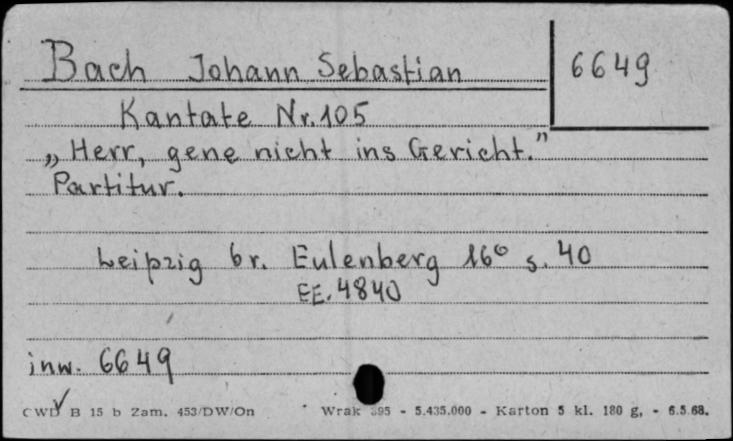 Bach Johann Sebastian
6649
Kantate Nr. 105
„Herr, gene nicht ins Gericht."
Partitur.
Leipzig br. Eulenberg 16° s. 40
EE. 4840
inw. 6649
CWD B 15 b Zam. 453/DW/On Wrak 395 - 5.435.000 - Karton 5 kl. 180 g, - 6.5.68.